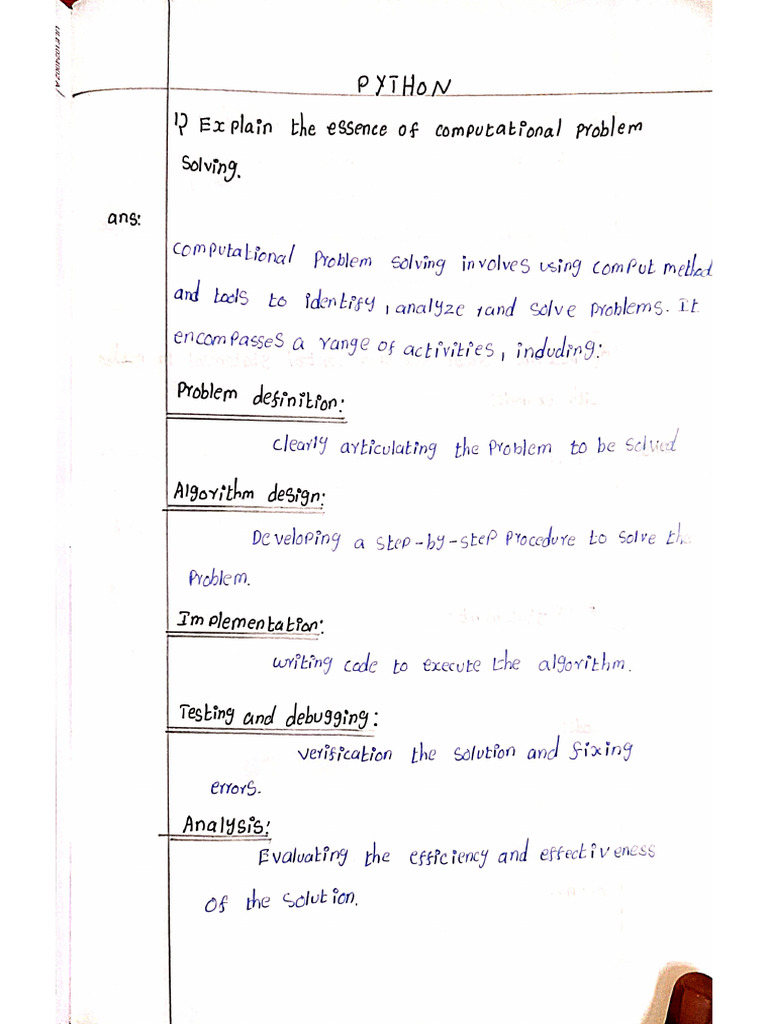 PYTHON
1) Explain the essence of computational problem
solving.
ans:
computational problem solving involves using comput method
and tools to identify, analyze, and solve problems. It
encompasses a range of activities, including:
Problem definition:
clearly articulating the problem to be solved
Algorithm design:
Developing a step-by-step procedure to solve the
problem.
Implementation:
writing code to execute the algorithm.
Testing and debugging:
verification the solution and fixing
errors.
Analysis:
Evaluating the efficiency and effectiveness
of the solution.